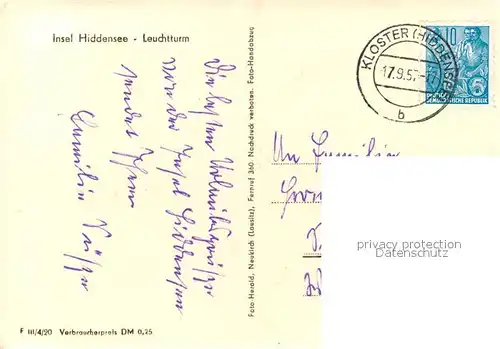 Insel Hiddensee - Leuchtturm
Die besten Urlaubsgrüße
von der Insel Hiddensee
sendet Ihnen
Familie
Foto-Herold, Neukirch (Lausitz), Fernruf 310. Nachdruck verboten. Foto-Handabzug
KLOSTER (HIDDENSEE)
17.9.57
b
10
DEUTSCHE DEMOKRATISCHE REPUBLIK
An Familie
privacy protection
Datenschutz
F III/4/20 Verbraucherpreis DM 0,25